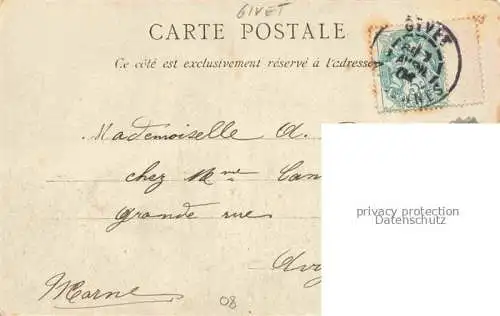 GIVET
CARTE POSTALE
Ce côté est exclusivement réservé à l'adresse
GIVET
Mademoiselle A.
chez Mme Can
grande rue
Marne
08
privacy protection
Datenschutz